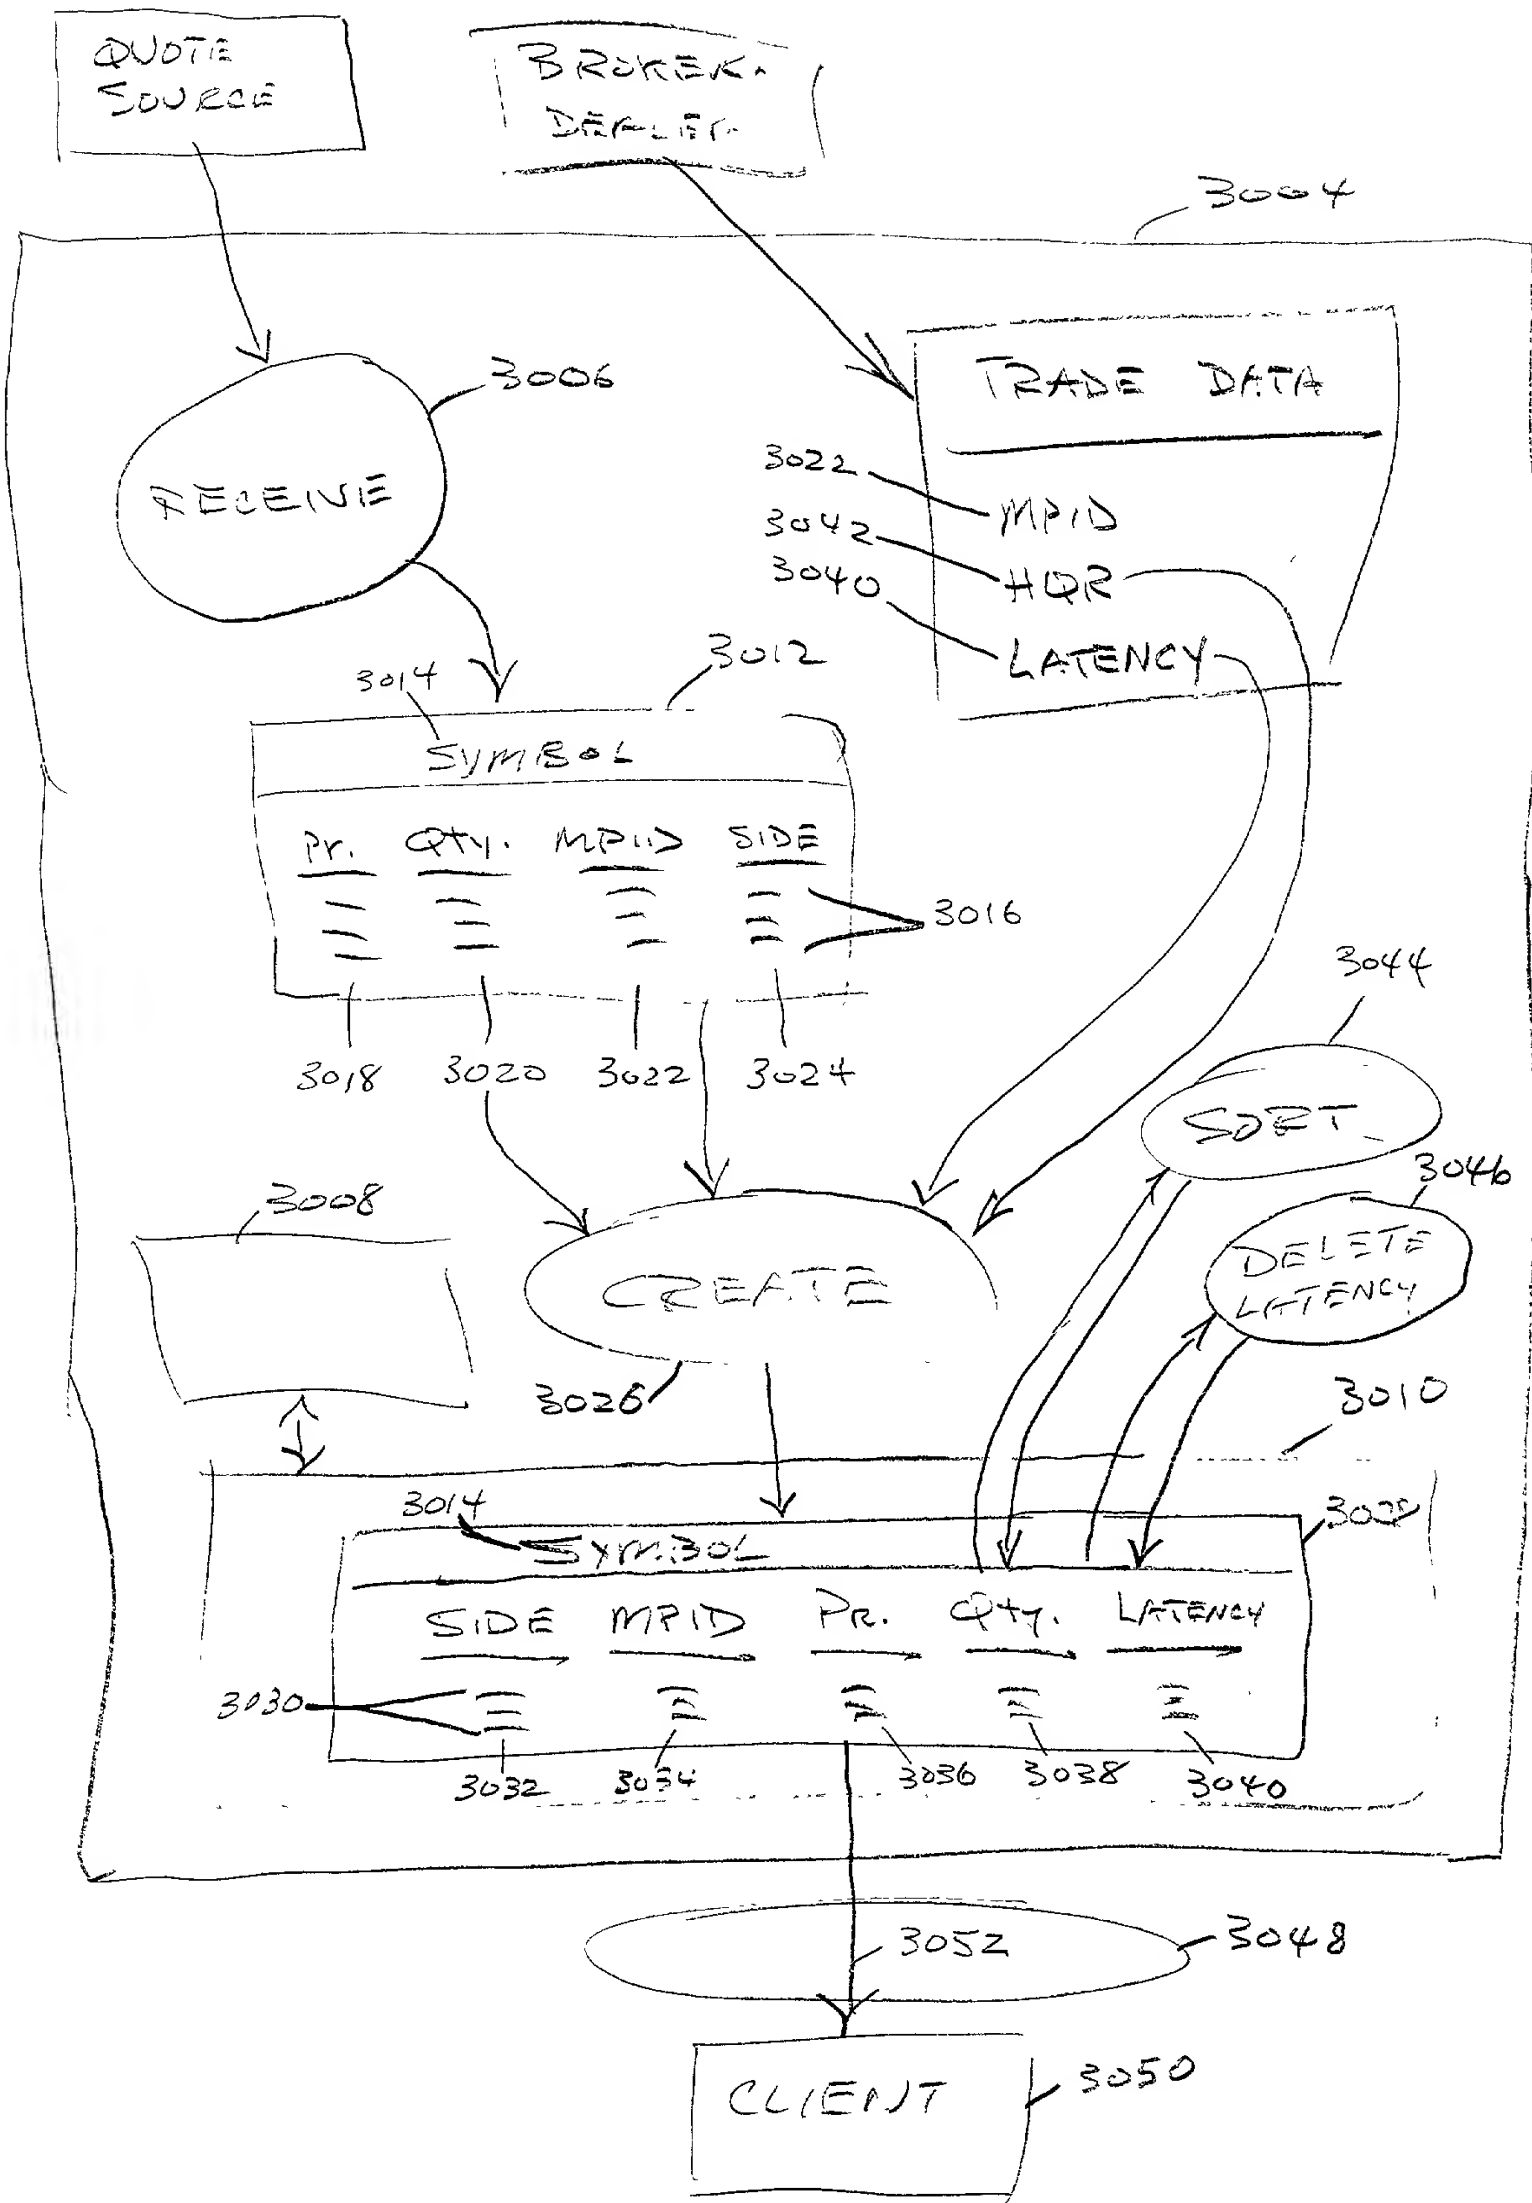 QUOTE
SOURCE
BROKER-
DEALER
3004
3006
RECEIVE
TRADE DATA
3022
MPID
3042
HQR
3040
LATENCY
3012
3014
SYMBOL
Pr. Qty. MPID SIDE
3016
3018 3020 3022 3024
3044
SORT
3046
DELETE
LATENCY
3008
CREATE
3026
3010
3014
SYMBOL
SIDE MPID PR. Qty. LATENCY
3030
3032 3034 3036 3038 3040
3052
3048
CLIENT
3050